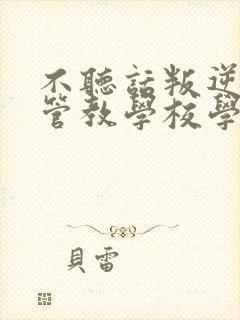 不聽話叛逆
管教學校學
貝雷